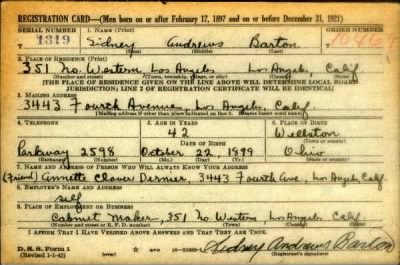 REGISTRATION CARD—(Men born on or after February 17, 1897 and on or before December 31, 1921)
SERIAL NUMBER 1. NAME (Print) ORDER NUMBER
1319 Sidney Andrews Barton
(First) (Middle) (Last)
2. PLACE OF RESIDENCE (Print)
351 No. Western Los Angeles Los Angeles, Calif
(Number and street) (Town, township, village, or city) (County) (State)
[THE PLACE OF RESIDENCE GIVEN ON THE LINE ABOVE WILL DETERMINE LOCAL BOARD
JURISDICTION; LINE 2 OF REGISTRATION CERTIFICATE WILL BE IDENTICAL]
3. MAILING ADDRESS
3443 Fourth Avenue, Los Angeles, Calif
[Mailing address if other than place indicated on line 2. If same insert word same]
4. TELEPHONE 5. AGE IN YEARS 6. PLACE OF BIRTH
42 Wellston
DATE OF BIRTH
Parkway 2598 October 22, 1899 Ohio
(Exchange) (Number) (Mo.) (Day) (Yr.) (State or country)
7. NAME AND ADDRESS OF PERSON WHO WILL ALWAYS KNOW YOUR ADDRESS
(Friend) Annette Clover 3443 Fourth Ave, Los Angeles, Calif
8. EMPLOYER'S NAME AND ADDRESS
self
9. PLACE OF EMPLOYMENT OR BUSINESS
Cabinet Maker, 351 No. Western Los Angeles, Calif
(Number and street or R. F. D. number) (Town) (County) (State)
I AFFIRM THAT I HAVE VERIFIED ABOVE ANSWERS AND THAT THEY ARE TRUE.
D. S. S. Form 1
(Revised 1-1-42) Sidney Andrews Barton